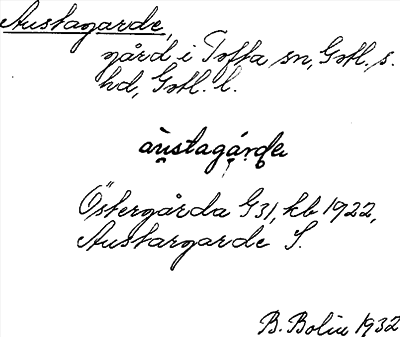 Austagarde,
gård i Tofta sn, Gotl. s.
hd, Gotl. l.
au̯stagárde
Östergårda G31, kb 1922,
Austargarde S.
B. Bolin 1932